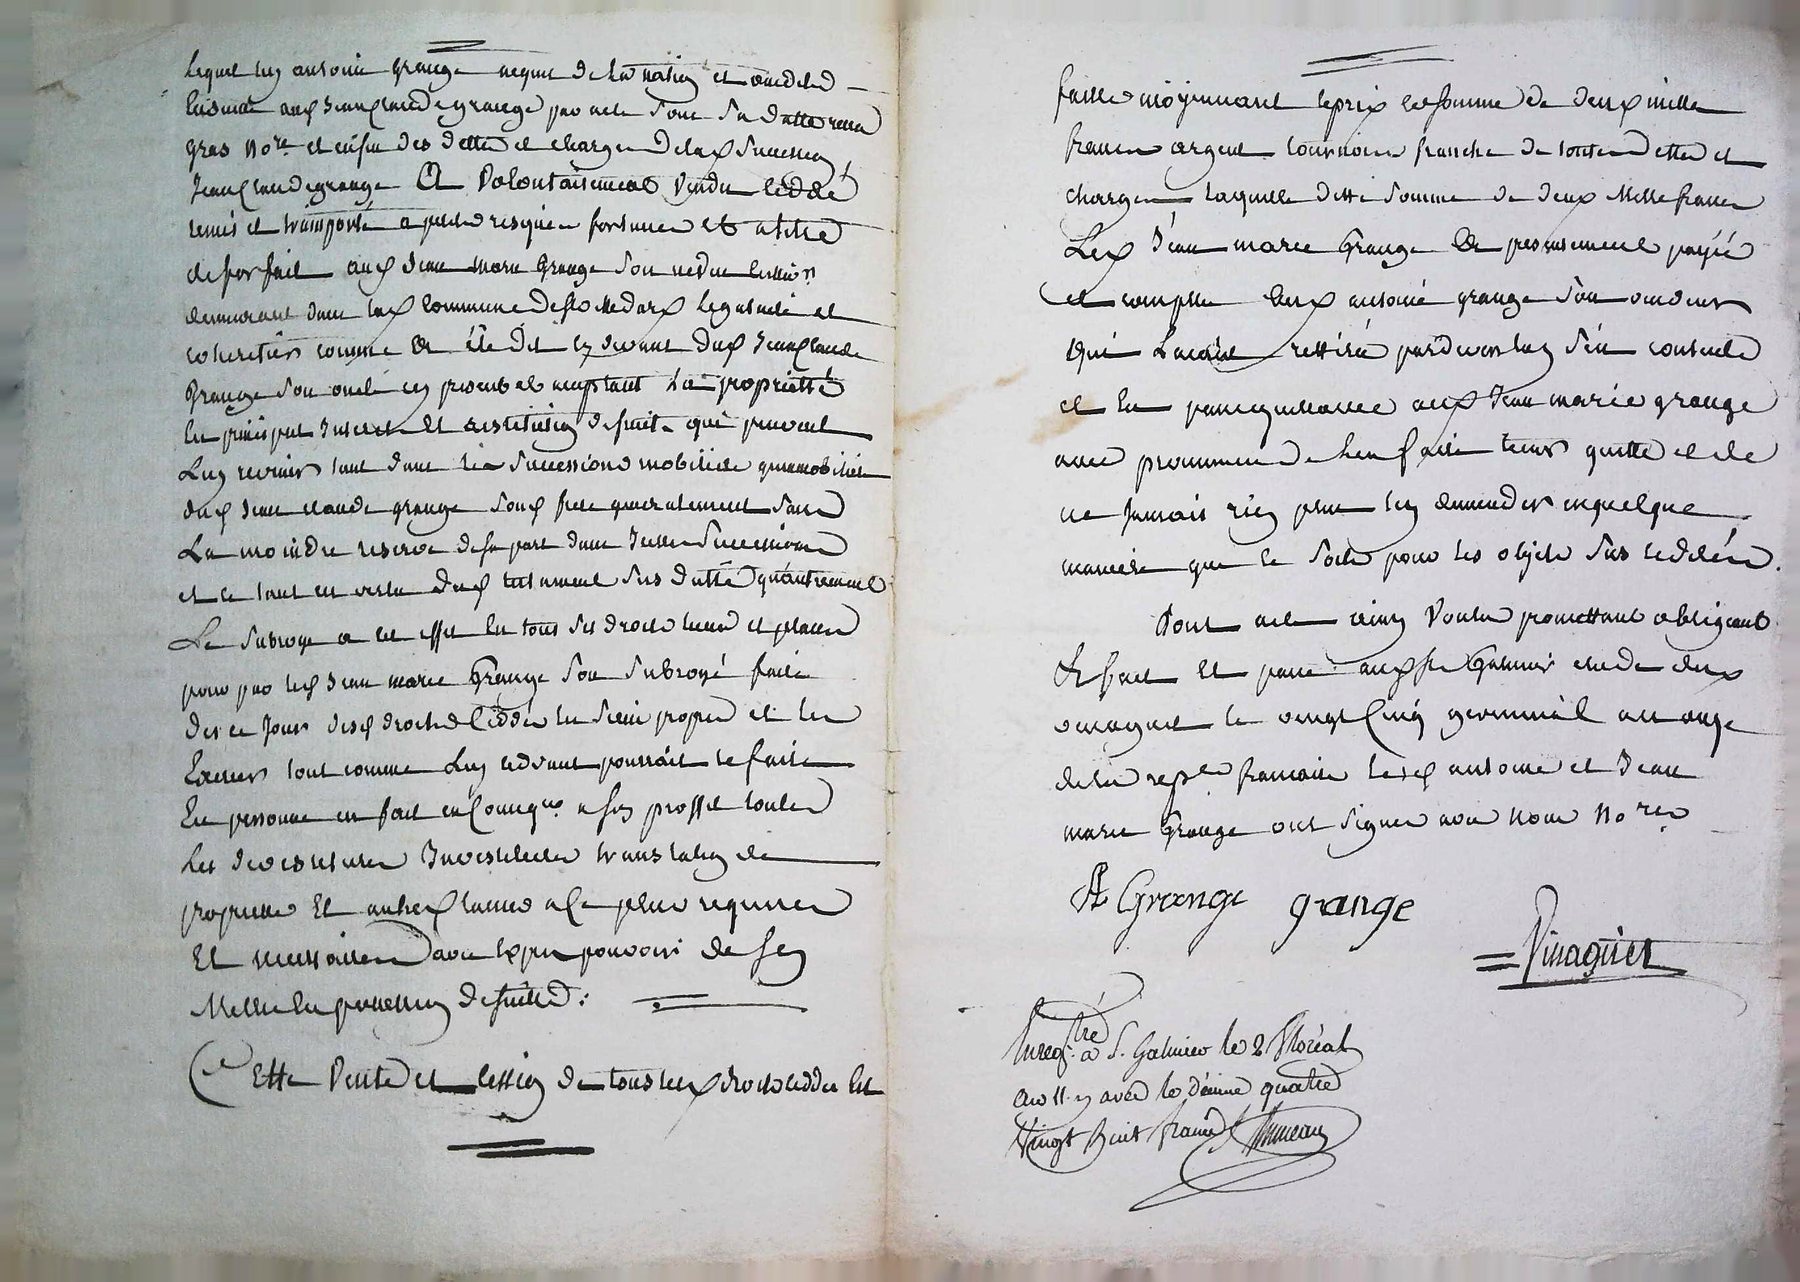 lequel luy antoine grange acquit de la nation et vendeld
ensuite aux Jean Claude grange par acte sous sa datte recu
gras no.re et enfin des dettes et charges de lax succession
Jean Claude grange a volontairement vendu cedde
remis et transporté a perils risques fortunes et a titre
de forfait aux Jean marie grange son neveu
demeurant dans lax commune de st Medard legataire et
coheretier comme a été dit cy devant dux Jean Claude
grange son oncle cy present et acceptant la proprietté
en principal Interet et restitution de fruits qui peuvent
luy revenir tant dans la succession mobiliere qu'immobiliere
dux Jean claude grange sonx frere generalement sans
La moindre reserve de sa part dans succession
et le tout en vertu dux testament sus datté quautrement
Le subroge a cet effet en tous ses droits lieux et places
pour par lex Jean marie Grange son subrogé faire
des ce jour desx droits ceddés les siens propres et les
Exercer tout comme luy ceddant pourrait le faire
En personne en fait en Conseq.ce a son proffit toutes
Les devestitures Investitures translation de
propriette Et autres clauses a ce plus requises
Et necessaires avec expres pouvoir de s'en
Mettre en possession de suitte :
Cette vente et cession de tous lesx droits cedder est
faitte moyennant le prix et somme de deux mille
francs argent tournois franche de toutes dettes et
charges laquelle ditte somme de deux Mille francs
Lex Jean marie Grange a presentement payée
et comptée aux antoine grange son vendeur
qui Layant rettirée pardevers luy s'en contente
et en passe quittance aux Jean marie grange
avec promesse de l'en faire tenir quitte et de
ne Jamais rien plus luy demander en quelque
maniere que ce soit pour les objets sus ceddés.
Dont acte ainsy voulu promettant obligeant
& fait et passé aux st Galmier etude dex
vinagnet le vingt Cinq germinal an onze
de la rep.e francaise lesx antoine et Jean
marie Grange ont signer avec nous no.re
A Grange grange
Vinagnet
Enreg.tré a S. Galmier le 2 floréal
an 11. y avec le décime quatre
vingt huit francs